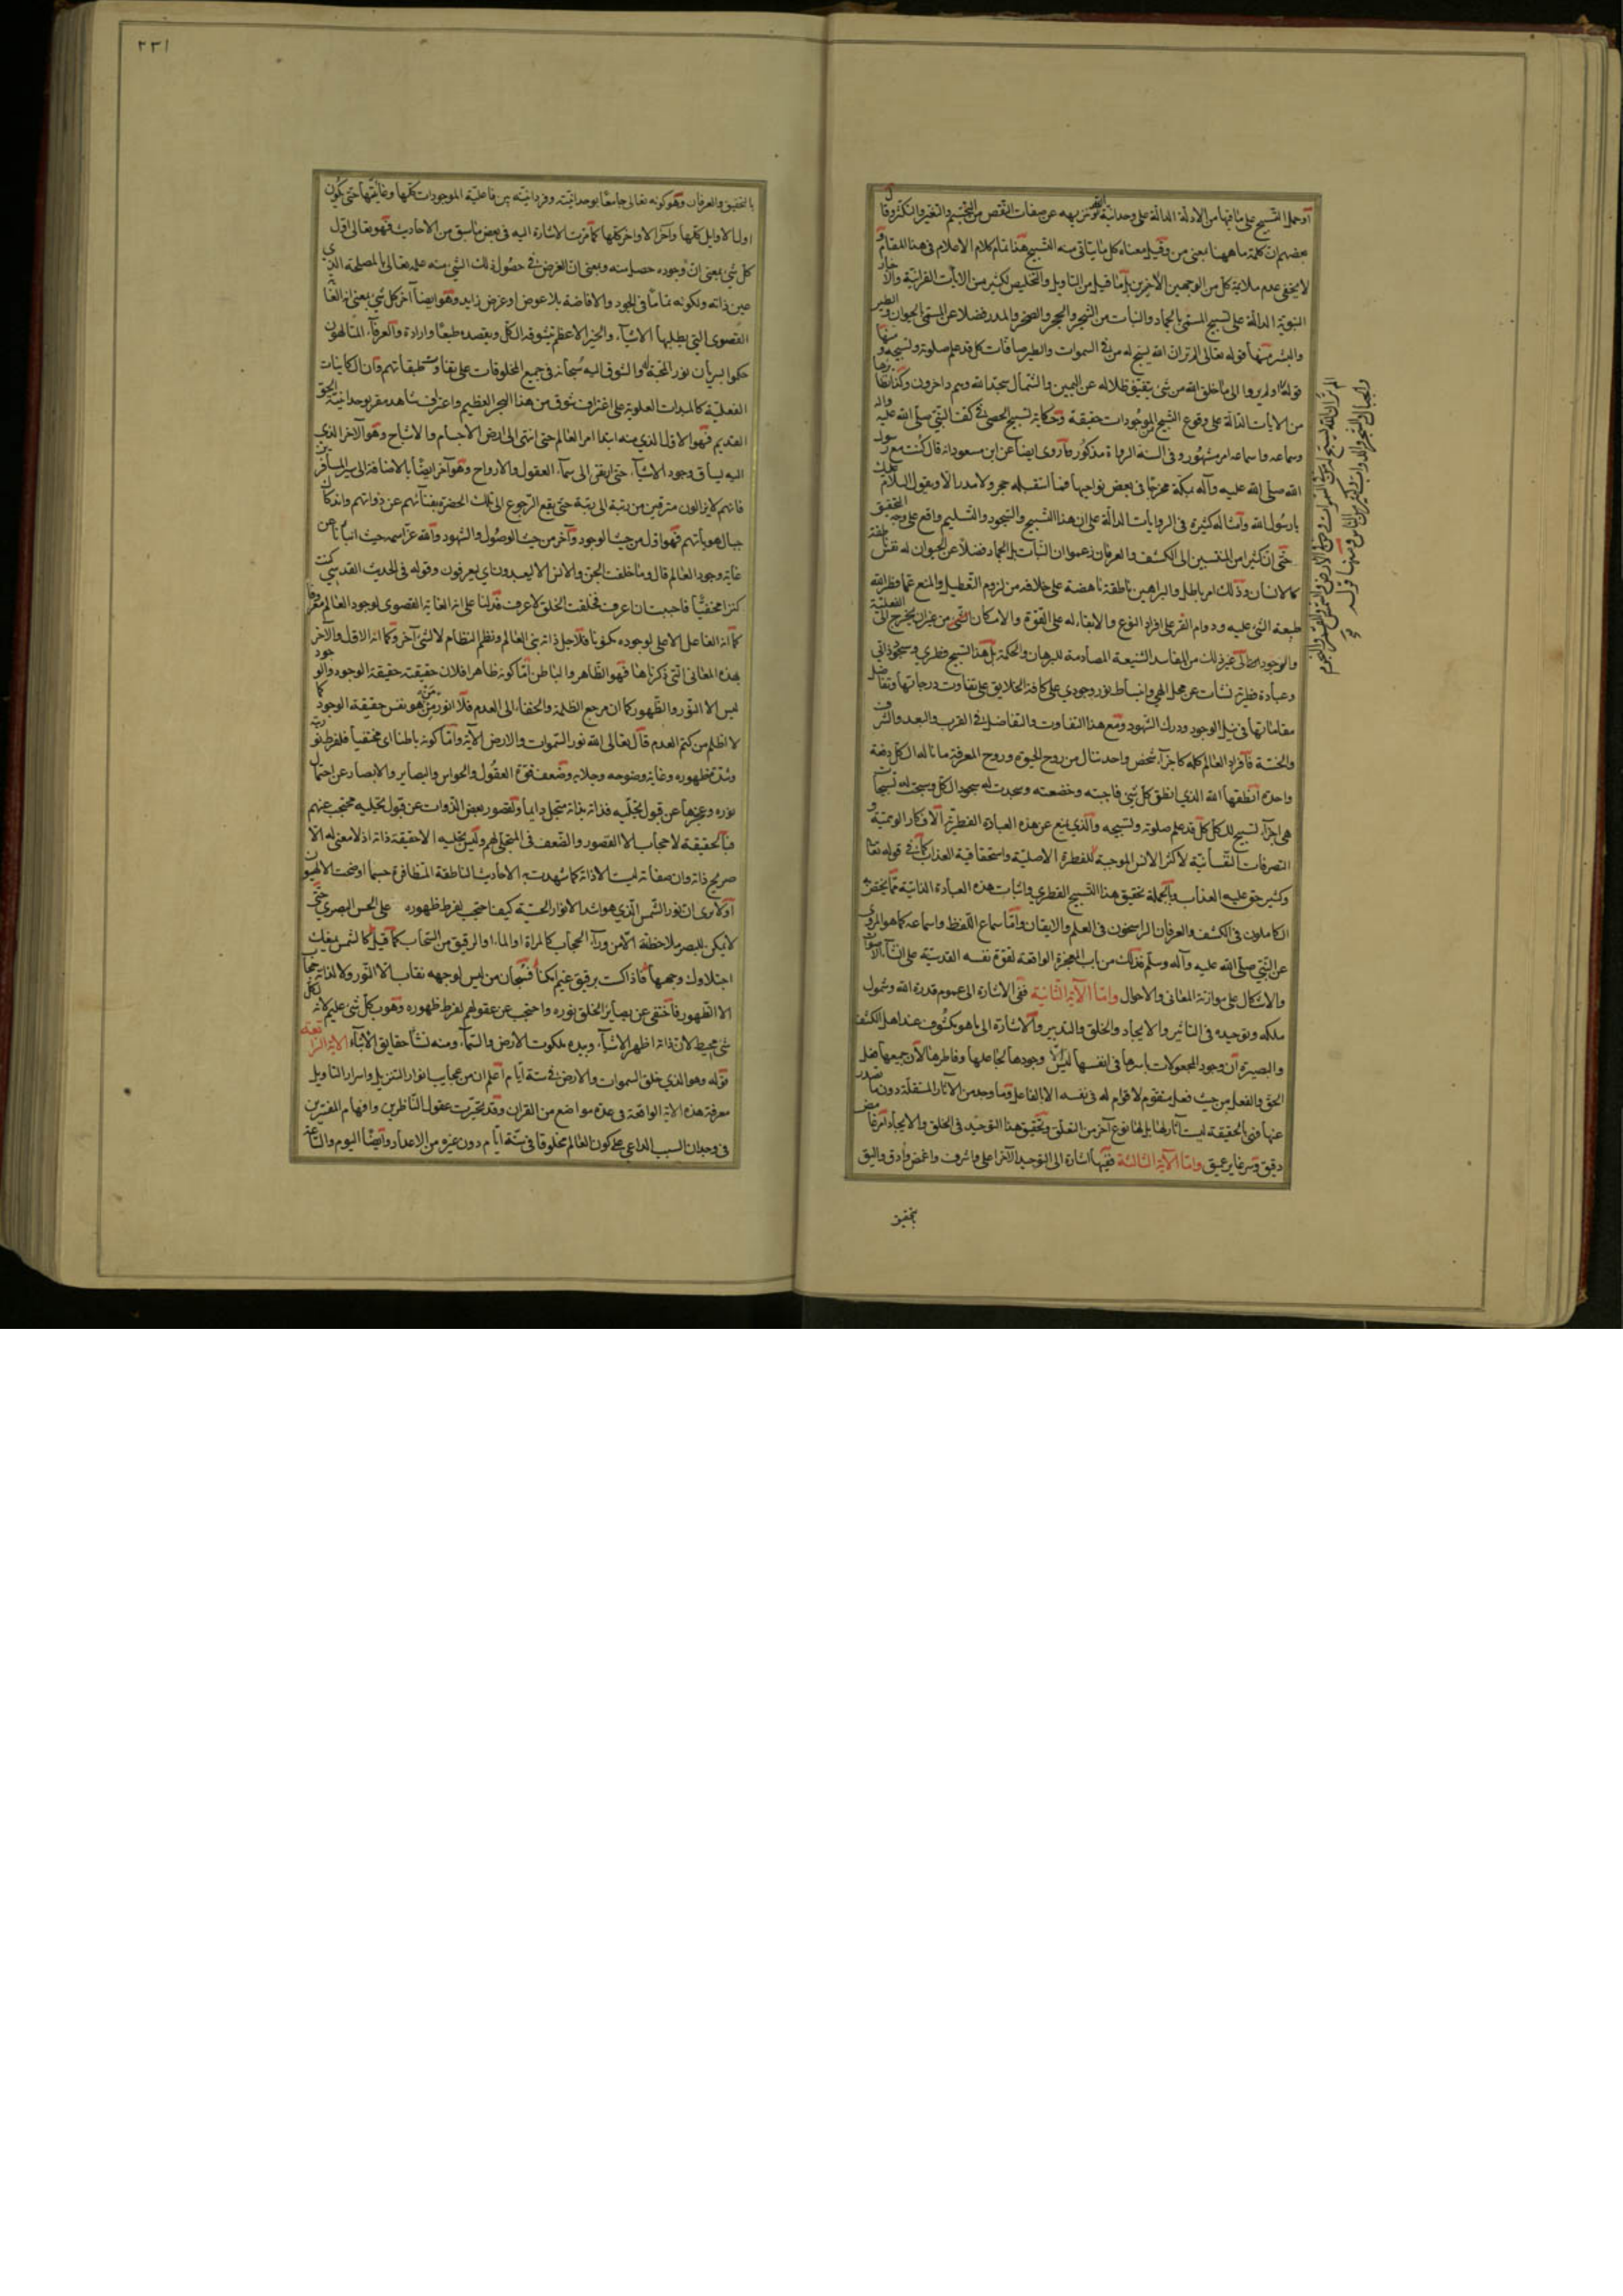 او حمل التسبيح على ما فيها من الادلة الدالة على وحدانيته وتنزيهه عن صفات النقص من التجسم والتغير والتكثر وقال
بعضهم ان كلمة ما ههنا بمعنى من وقيل معناه كل ما يتاتى منه التسبيح هذا تمام كلام الاعلام فى هذا المقام و
لا يخفى عدم ملايمة كل من الوجهين الاخيرين بل ما قيل من التاويل والتخليص لكثير من الايات القرانية والاخبار
النبوية الدالة على تسبيح المسمى بالجماد والنبات من الشجر والحجر والصخر والمدر فضلا عن المسمى الحيوان والطير
والبشر منها قوله تعالى الم تر ان الله يسبح له من فى السموات والطير صافات كل قد علم صلوته وتسبيحه ومنها
قوله اولم يروا الى ما خلق الله من شئ يتفيؤ ظلاله عن اليمين والشمال سجدا لله وهم داخرون وكذا نظايرها
من الايات الدالة على وقوع التسبيح من الموجودات حقيقة وحكاية تسبيح الحصى فى كف النبى صلى الله عليه واله
وسماعه واسماعه امر مشهور وفى السنة الرواة مذكور وما روى ايضا عن ابن مسعود انه قال كنت مع رسول
الله صلى الله عليه وآله بمكة فخرجنا فى بعض نواحيها فما استقبله حجر ولا مدر الا ويقول السلام عليك
يا رسول الله وامثاله كثيرة فى الروايات الدالة على ان هذا التسبيح والسجود والتسليم واقع على وجه التحقيق
حتى ان كثيرا من المنتسبين الى الكشف والعرفان زعموا ان النبات بل الجماد فضلا عن الحيوان له نفس ناطقة
كالانسان وذلك امر باطل والبراهين ناطقة ناهضة على خلافه من لزوم التعطيل والمنع عما فطر الله
طبيعة الشئ عليه ودوام القسر على افراد النوع والابقاء له على القوة والامكان الشئ من غير ان يخرج الى الفعلية
والوجود الى غير ذلك من المفاسد الشنيعة المصادمة للبرهان والحكمة بل هذا تسبيح فطرى وسجود ذاتى
وعبادة فطرية نشات عن تجل الهى وانبساط نور وجودى على كافة الخلايق على تفاوت درجاتها وتفاضل
مقاماتها فى نيل الوجود ودرك الشهود ومع هذا التفاوت والتفاضل فى القرب والبعد والشرف
والخسة فافراد العالم كله كاجزاء شخص واحد تنال من روح الحيوة وروح المعرفة ما ناله الكل دفعة
واحدة انطقها الله الذى انطق كل شئ فاجبته وخضعته وسجدت له سجود الكل وسبحت له تسبيحا
هى اجزاء تسبيح للكل كل قد علم صلوته وتسبيحه والذى يمنع عن هذه العبادة الفطرية الافكار الوهمية و
التصرفات النفسانية لاكثر الانس الموجبة للفطرة الاصلية واستحقاقية العذاب كما فى قوله تعالى
وكثير حق عليه العذاب وبالجملة تحقيق هذا التسبيح الفطرى واثبات هذه العبادة الذاتية مما يختص به
الكاملون فى الكشف والعرفان الراسخون فى العلم والايقان واما سماع اللفظ واسماعه كما هو المروى
عن النبى صلى الله عليه وآله وسلم فذلك من باب المعجزة الواقعة لقوة نفسه القدسية على انشاء الاصوات
والاشكال على موازنة المعانى والاحوال واما الآية الثانية ففى الاشارة الى عموم قدرة الله وشمول
ملكه وتوحيده فى التاثير والايجاد والخلق والتدبير والاشارة الى ما هو مكشوف عند اهل الكشف
والبصيرة ان وجود المجعولات باسرها فى انفسها ليس الا وجودها لجاعلها وفاطرها لان جميعها فعل
الحق والفعل من حيث فعل متقوم لا قوام له فى نفسه الا بالفاعل وما وجد من الآثار المستقلة دون ما تصدر
عنها فى الحقيقة ليست آثارا لها بل لها نوع آخر من التعلق وتحقيق هذا التوحيد فى الخلق والايجاد امر غامض
دقيق وسر غاير عميق واما الآية الثالثة ففيها اشارة الى التوحيد الآخر اعلى واشرف واغمض وادق واليق
بتحقيق
الم تر ان الله يسبح له من فى السموات ومن فى الارض والشمس والقمر والنجوم
والجبال والشجر والدواب وكثير من الناس ومنها قوله
٢٣١
بالتحقيق والعرفان وهو كونه تعالى جامعا بوحدانيته وفردانيته بين فاعلية الموجودات كلها وغائيتها حتى يكون
اول الاوايل كلها وآخر الاواخر كلها كما مرت الاشارة اليه فى بعض ما سبق من الاحاديث فهو تعالى اول
كل شئ بمعنى ان وجوده حصل منه وبمعنى ان الغرض فى حصول ذلك الشئ منه علمه تعالى بالمصلحة الذى
عين ذاته ولكونه تماما فى الجود والافاضة بلا عوض او غرض زايد وهو ايضا آخر كل شئ بمعنى انه الغاية
القصوى التى يطلبها الاشياء والخير الاعظم يتشوقه الكل ويقصده طبعا وارادة والعرفاء المتالهون
حكموا بسريان نور المحبة له والشوق اليه سبحانه فى جميع المخلوقات على تفاوت طبقاتهم وان الكاينات
السفلية كالمبدعات العلوية على اغتراف شوق من هذا البحر العظيم واعتراف شاهد مقر بوحدانية الحق
القديم فهو الاول الذى منه ابتدا امر العالم حتى انتهى الى ارض الاجسام والاشباح وهو الآخر الذى
اليه يساق وجود الاشياء حتى يرتقى الى سماء العقول والارواح وهو آخر ايضا بالاضافة الى سير المسافرين
فانهم لا يزالون مترقين من رتبة الى رتبة حتى يقع الرجوع الى تلك الحضرة بفنائهم عن ذواتهم واندكاك
جبال هوياتهم فهو اول من حيث الوجود وآخر من حيث الوصول والشهود والله عز اسمه حيث انبانا عن
غاية وجود العالم قال وما خلقت الجن والانس الا ليعبدون اى يعرفون وقوله فى الحديث القدسى كنت
كنزا مخفيا فاحببت ان اعرف فخلقت الخلق لاعرف فدلنا على انه الغاية القصوى لوجود العالم معروفا
كما انه الفاعل الاعلى لوجوده مكونا فلاجل ذاته بنى العالم ونظم النظام لا لشئ آخر وكما انه الاول والآخر
بهذه المعانى التى ذكرناها فهو الظاهر والباطن اما كونه ظاهرا فلان حقيقته حقيقة الوجود والوجود
ليس الا النور والظهور كما ان مرجع الظلمة والخفاء الى العدم فلا انور ممن هو نفس حقيقة الوجود كما
لا اظلم من كتم العدم قال تعالى الله نور السموات والارض الآية واما كونه باطنا اى مختفيا فلفرط نوريته
وشدة ظهوره وغاية وضوحه وجلائه وضعف قوة العقول والحواس والبصاير والابصار عن احتمال
نوره وعجزها عن قبول تجليه فذاته بذاته متجل دايما ولقصور بعض الذوات عن قبول تجليه محتجب عنهم
فبالحقيقة لا حجاب الا القصور والضعف فى المتجلى لهم وليس تجليه الا حقيقة ذاته اذ لا معنى له الا
صريح ذاته وان صفاته ليست الا ذاته كما شهدت به الاحاديث الناطقة المتظافرة حسبما اوضحت الالهيون
اولا ترى ان نور الشمس الذى هو اشد الانوار الحسية كيف احتجب لفرط ظهوره على الحس البصرى حتى
لا يمكن للبصر ملاحظته الا من وراء الحجاب كالمرآة او الماء او الرقيق من السحاب كما قيل كالشمس يمنعك
اجتلاؤك وجهها فاذا اكتست برقيق غيم امكنا فسبحان من ليس لوجهه نقاب الا النور ولا لذاته حجاب
الا الظهور فاختفى عن بصاير الخلق بنوره واحتجب عن عقولهم لفرط ظهوره وهو بكل شئ عليم لانه لكل
شئ محيط لان ذاته اظهر الاشياء وبيده ملكوت الارض والسماء ومنه نشأ حقايق الاشياء الاية الرابعة
قوله وهو الذى خلق السموات والارض فى ستة ايام اعلم ان من عجايب انوار التنزيل واسرار التاويل
معرفة هذه الاية الواقعة فى عدة مواضع من القران وقد تحيرت عقول الناظرين وافهام المفسرين
فى وجدان السبب الداعى على كون العالم مخلوقا فى ستة ايام دون غيره من الاعداد وايضا اليوم والساعة